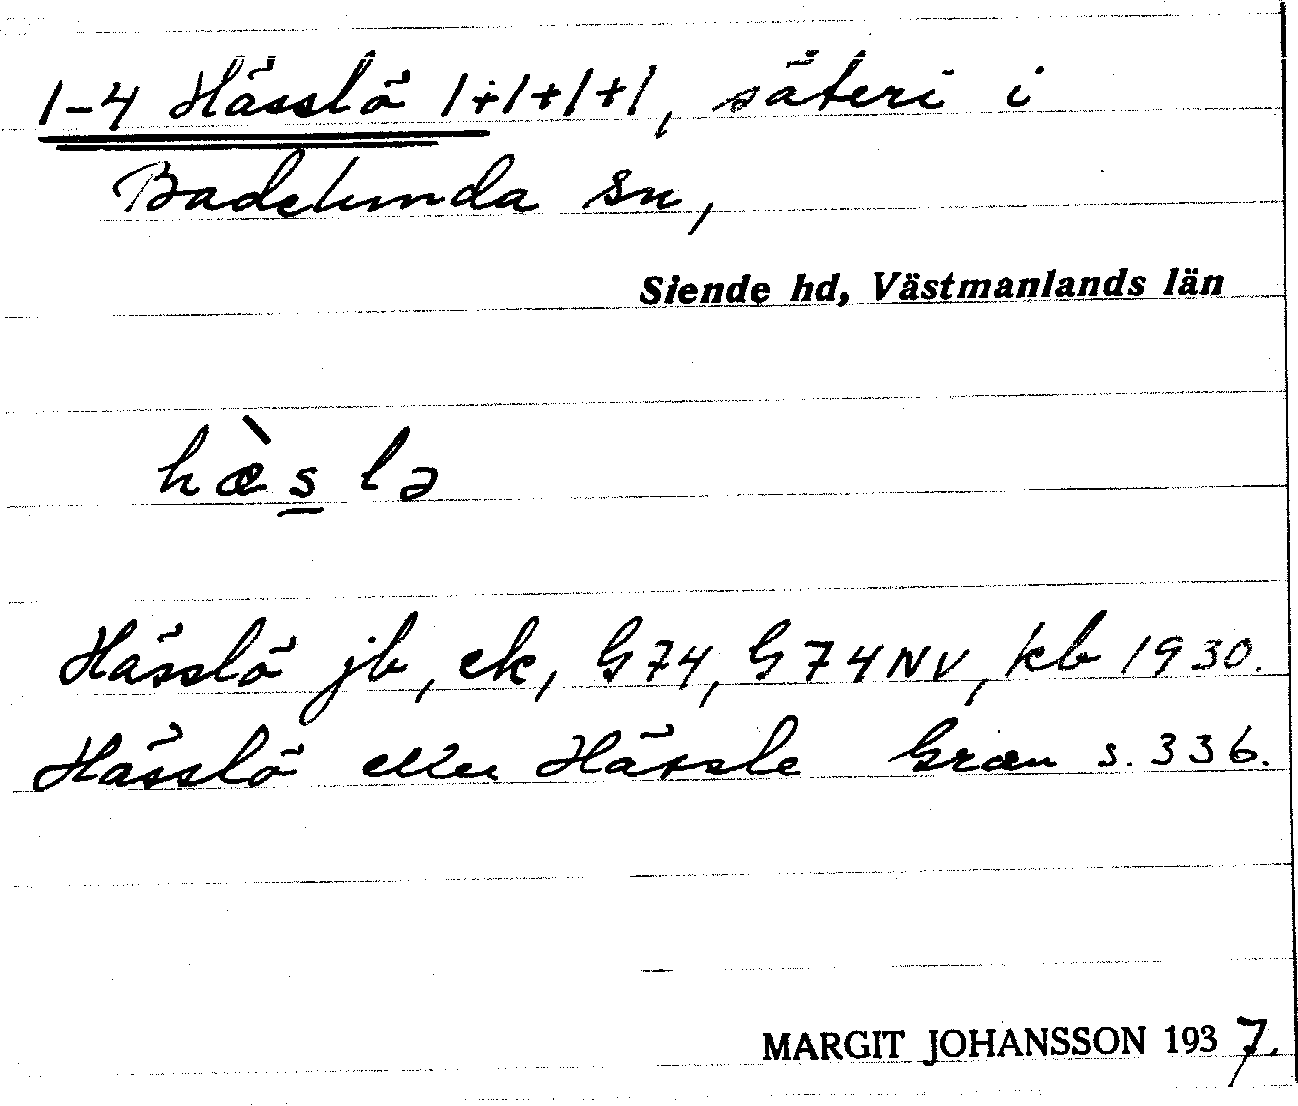 1-4 Hässlö 1+1+1+1, säteri i
Badelunda sn,
Siende hd, Västmanlands län
hæ̀s lə
Hässlö jb, ek, G74, G74NV, kb 1930.
Hässlö eller Hässle Grau s. 336.
MARGIT JOHANSSON 1937.